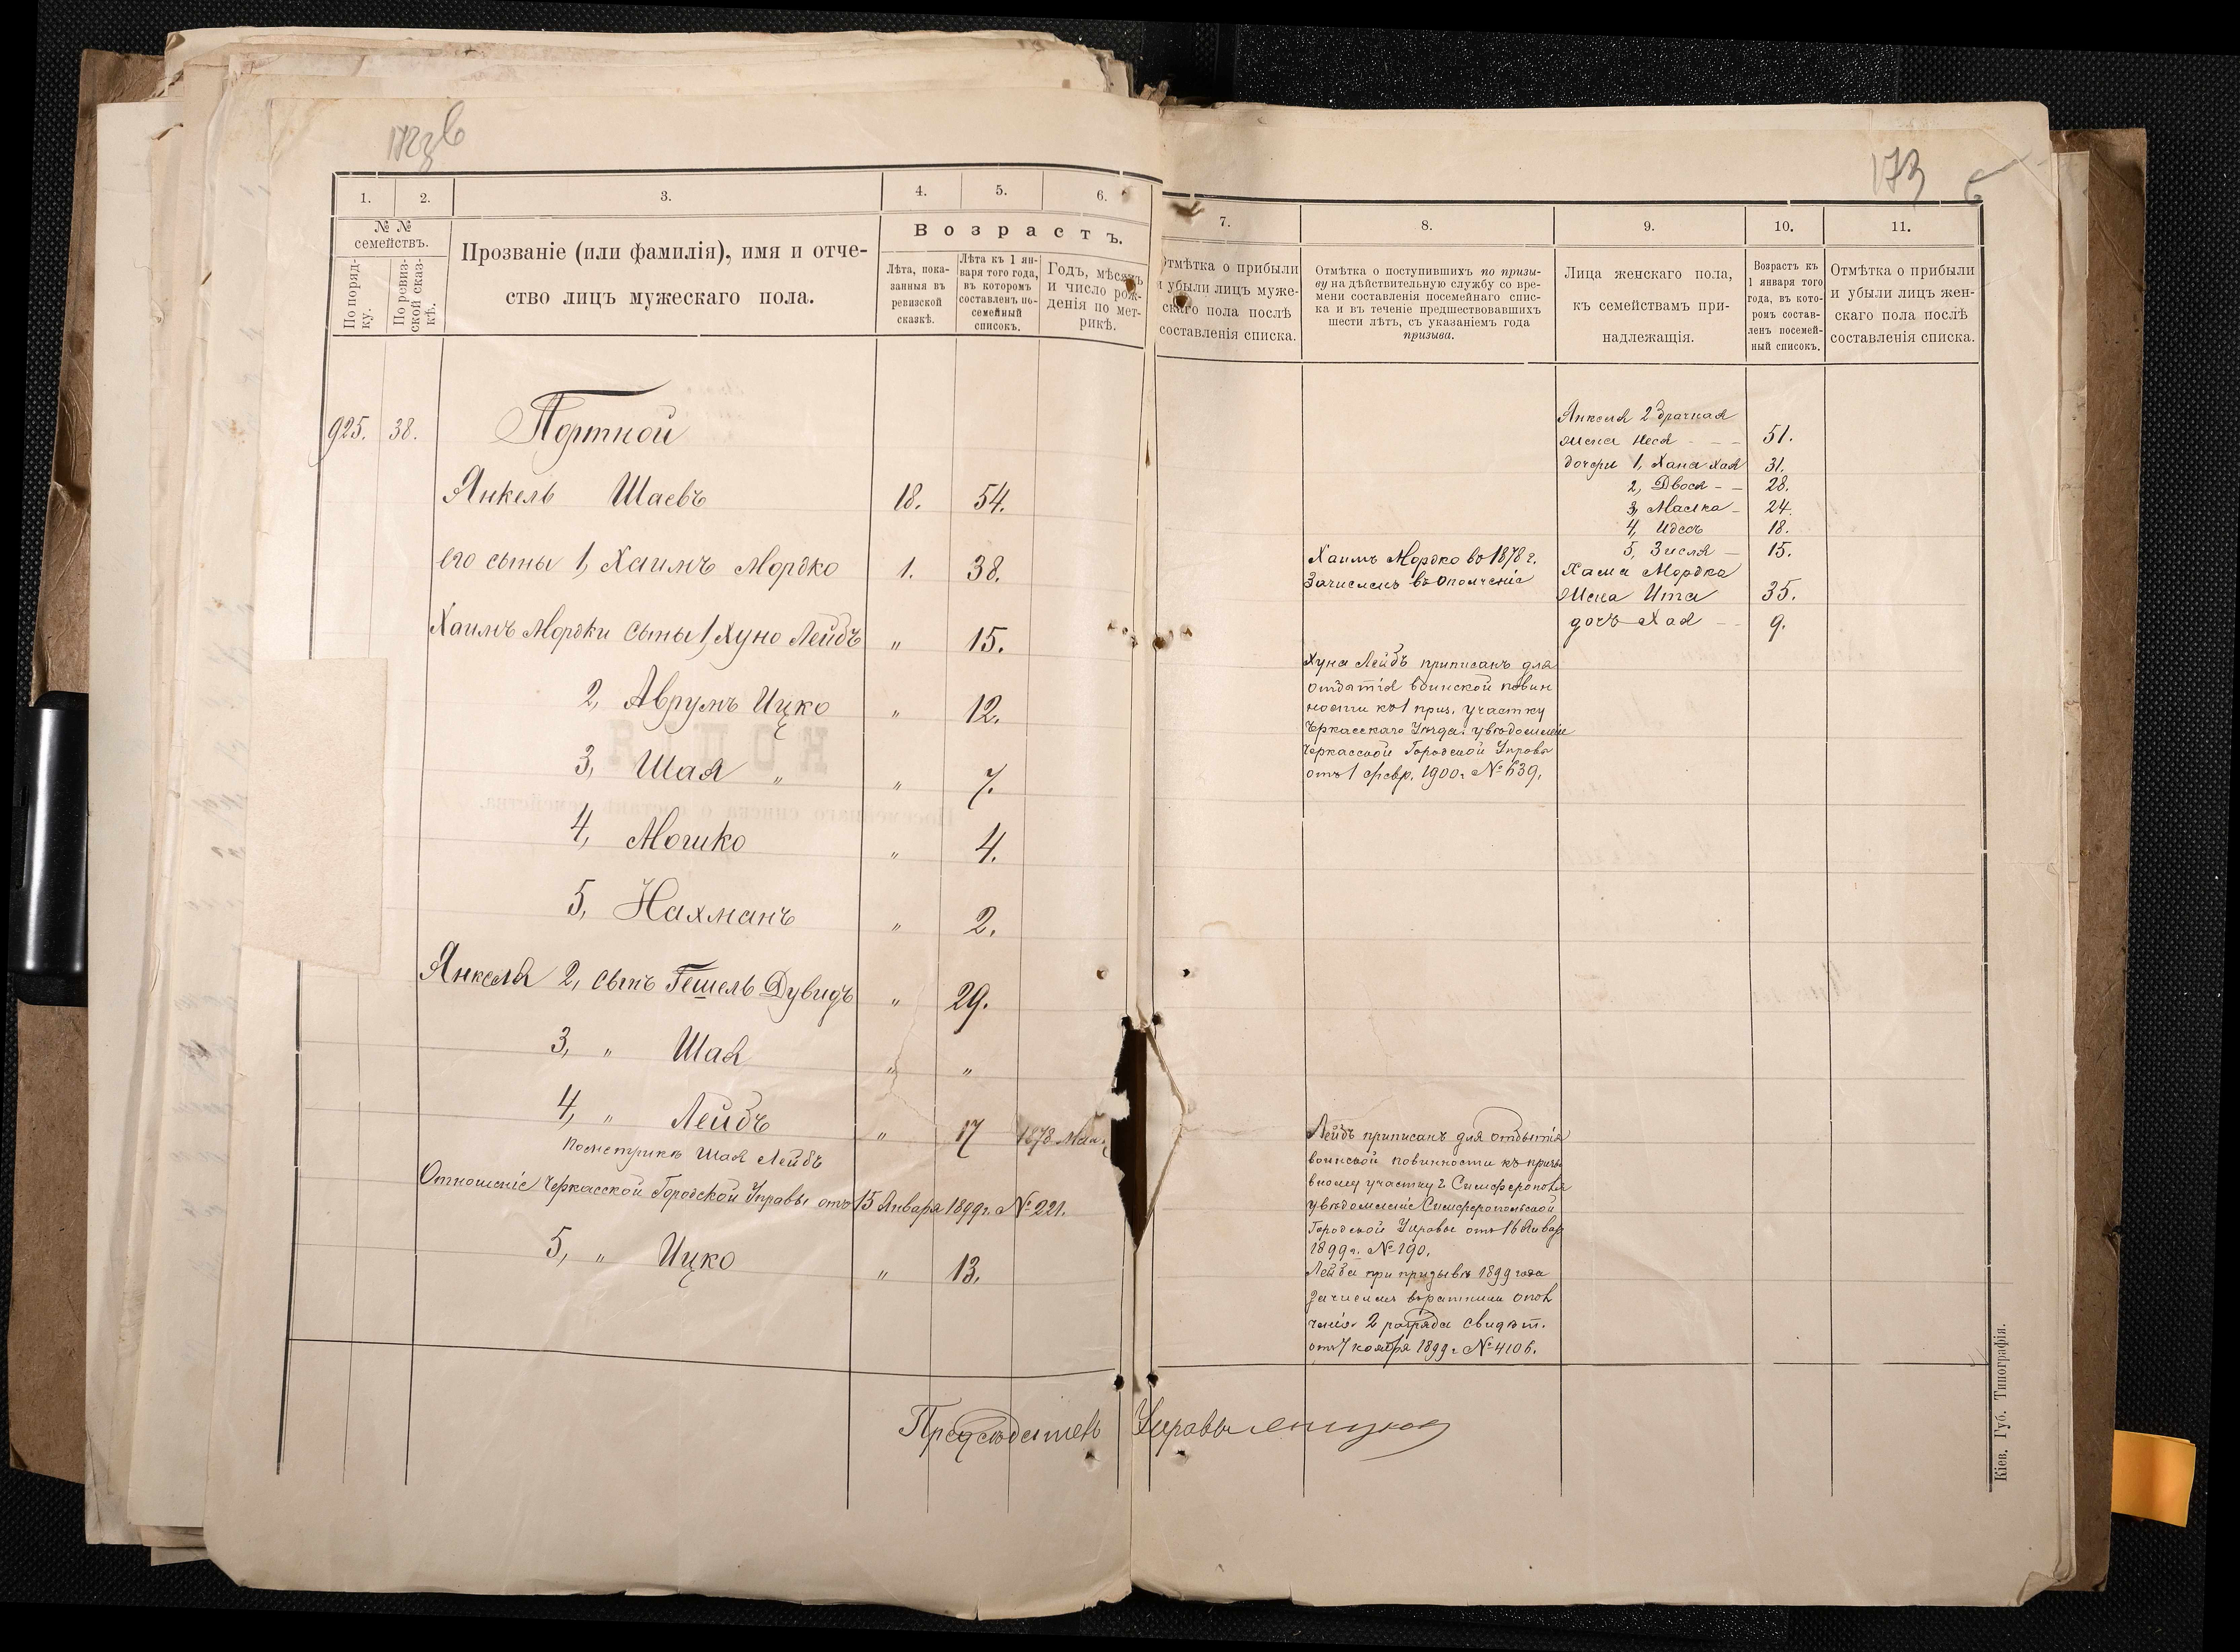 173
1.
2.
3.
4.
5.
6.
№ №
семействъ.
По поряд-
ку.
По ревиз-
ской сказ-
кѣ.
Прозваніе (или фамилія), имя и отче-
ство лицъ мужескаго пола.
Возрастъ.
Лѣта, пока-
занныя въ
ревизской
сказкѣ.
Лѣта къ 1 ян-
варя того года,
въ которомъ
составленъ по-
семейный
списокъ.
Годъ, мѣсяцъ
и число рож-
денія по мет-
рикѣ.
925. 38. Портной
Янкель Шаевъ 18. 54.
его сыны 1, Хаимъ Мордко 1. 38.
Хаимъ Мордки сыны 1, Хуно Лейбъ " 15.
2, Аврумъ Ицко " 12.
3, Шая " " 7.
4, Мошко " 4.
5, Нахманъ " 2.
Янкеля 2, сынъ Гешель Дувидъ " 29.
3, " Шая " "
4, " Лейбъ " 17 1878 Мая
По метрикѣ Шая Лейбъ
Отношеніе Черкасской Городской Управы отъ 15 Января 1899 г. № 221.
5, " Ицко " 13.
Предсѣдатель Управы
7.
8.
9.
10.
11.
Отмѣтка о прибыли
и убыли лицъ муже-
скаго пола послѣ
составленія списка.
Отмѣтка о поступившихъ по призы-
ву на дѣйствительную службу со вре-
мени составленія посемейнаго спис-
ка и въ теченіе предшествовавшихъ
шести лѣтъ, съ указаніемъ года
призыва.
Лица женскаго пола,
къ семействамъ при-
надлежащія.
Возрастъ къ
1 января того
года, въ кото-
ромъ состав-
ленъ посемей-
ный списокъ.
Отмѣтка о прибыли
и убыли лицъ жен-
скаго пола послѣ
составленія списка.
Хаимъ Мордко въ 1878 г.
Зачисленъ въ ополченіе
Хуна Лейбъ приписанъ для
отбытія воинской повин
ности къ 1 приз. участку
Черкасскаго Уѣзда. увѣдомленіе
Черкасской Городской Управы
отъ 1 февр. 1900 г. № 639.
Лейбъ приписанъ для отбытія
воинской повинности къ призы
вному участку г. Симферополя
увѣдомленіе Симферопольской
Городской Управы отъ 16 Января
1899 г. № 190.
Лейба при призывѣ 1899 года
зачисленъ въ ратники опол
ченія 2 разряда свидѣт.
отъ 7 ноября 1899 г. № 4106.
Янкеля 2 брачная
жена Неся - - - 51.
дочери 1, Хана Хая 31.
2, Двося - - 28.
3, Малка - 24.
4, Идесъ 18.
5, Зисля - 15.
Хаима Мордка
жена Ита 35.
дочь Хая - - 9.
173
Кіев. Губ. Типографія.